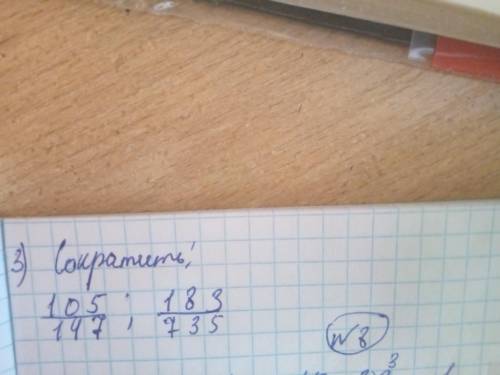 3) Сократить!
105/147 ; 183/735
№8
3